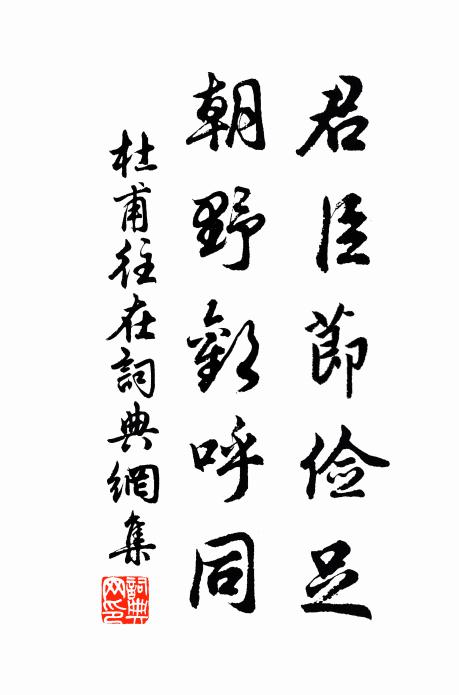 君臣節儉足
朝野歡呼同
杜甫往在詞典網集
詞典网印